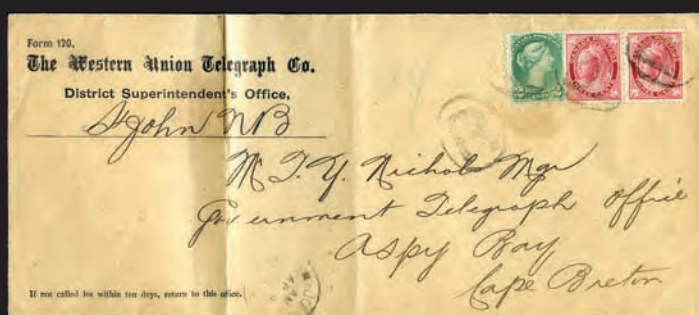 Form 120.
The Western Union Telegraph Co.
District Superintendent's Office,
St John NB
Mr T. Y. Nichols Mgr
Government Telegraph Office
Aspy Bay
Cape Breton
If not called for within ten days, return to this office.